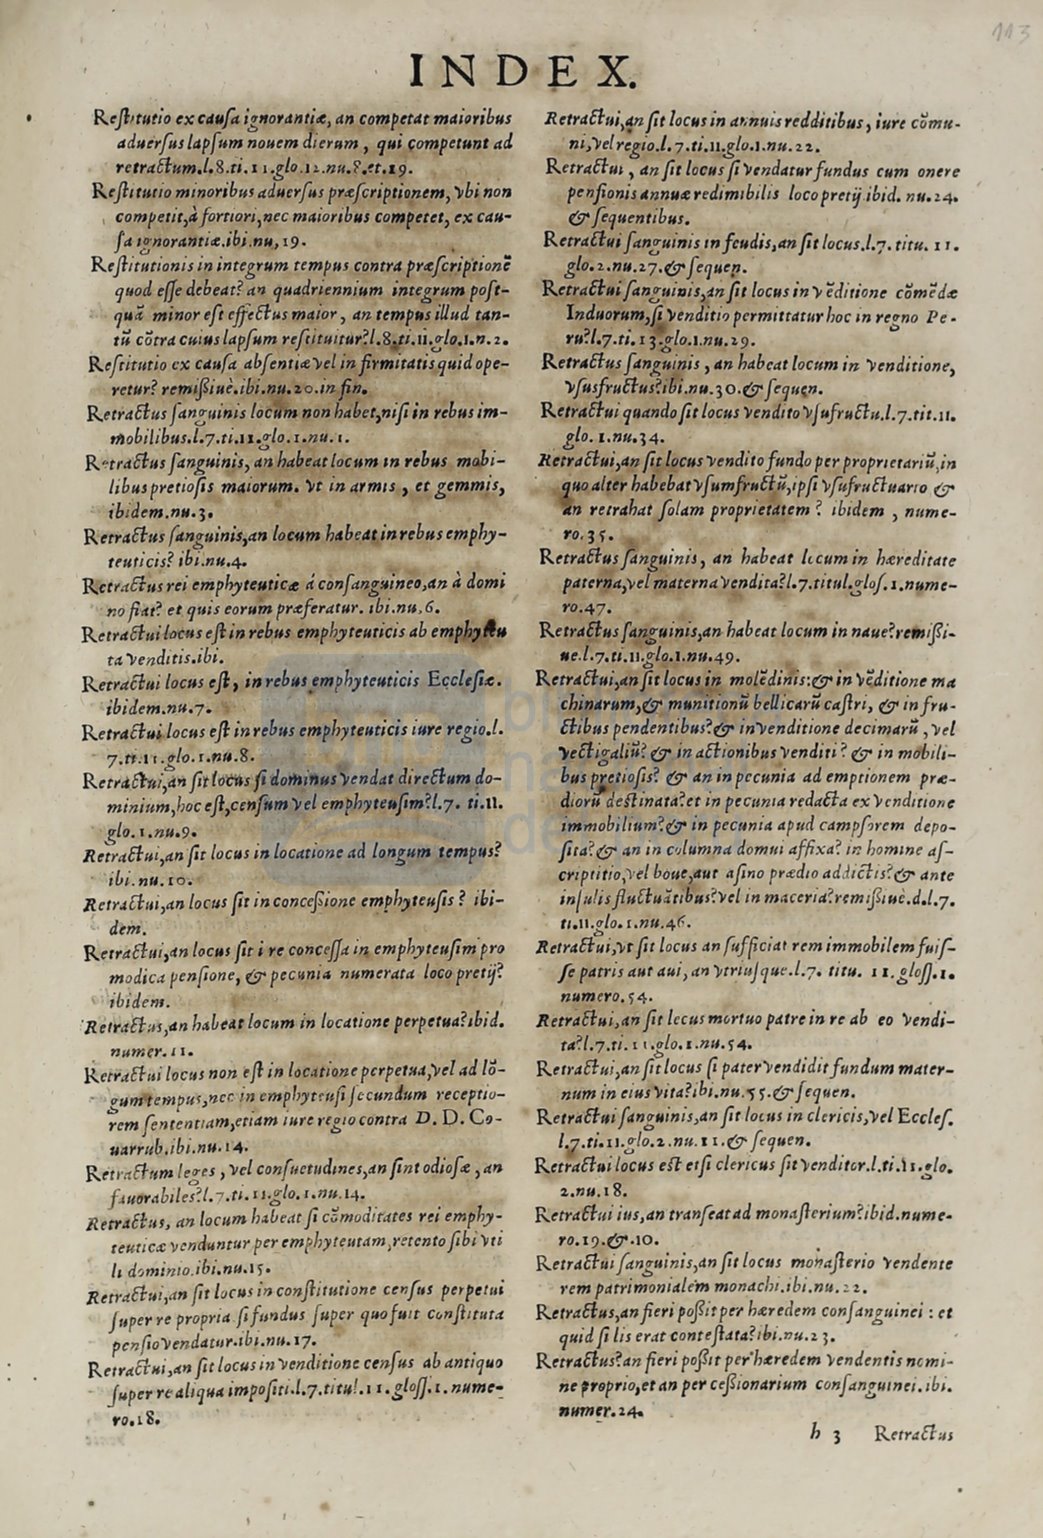 113
INDEX.
Restitutio ex causa ignorantiæ, an competat maioribus
aduersus lapsum nouem dierum, qui competunt ad
retractum.l.8.ti.11.glo.12.nu.?.et.19.
Restitutio minoribus aduersus præscriptionem, vbi non
competit, à fortiori, nec maioribus competet, ex cau-
sa ignorantiæ.ibi.nu,19.
Restitutionis in integrum tempus contra præscriptionẽ
quod esse debeat? an quadriennium integrum post-
quã minor est effectus maior, an tempus illud tan-
tũ cõtra cuius lapsum restituitur?l.8.ti.11.glo.1.n.2.
Restitutio ex causa absentiæ vel in firmitatis quid ope-
retur? remißiuè.ibi.nu.20.in fin.
Retractus sanguinis locum non habet, nisi in rebus im-
mobilibus.l.7.ti.11.glo.1.nu.1.
Retractus sanguinis, an habeat locum in rebus mobi-
libus pretiosis maiorum. vt in armis, et gemmis,
ibidem.nu.3.
Retractus sanguinis, an locum habeat in rebus emphy-
teuticis? ibi.nu.4.
Retractus rei emphyteuticæ á consanguineo, an à domi
no fiat? et quis eorum præferatur. ibi.nu.6.
Retractui locus est in rebus emphyteuticis ab emphyteu
ta venditis.ibi.
Retractui locus est, in rebus emphyteuticis Ecclesiæ.
ibidem.nu.7.
Retractui locus est in rebus emphyteuticis iure regio.l.
7.ti.11.glo.1.nu.8.
Retractui, an sit locus si dominus vendat directum do-
minium, hoc est, censum vel emphyteusim?l.7. ti.11.
glo.1.nu.9.
Retractui, an sit locus in locatione ad longum tempus?
ibi.nu.10.
Retractui, an locus sit in conceßione emphyteusis? ibi-
dem.
Retractui, an locus sit i re concessa in emphyteusim pro
modica pensione, & pecunia numerata loco pretij?
ibidem.
Retractus, an habeat locum in locatione perpetua?ibid.
numer.11.
Retractui locus non est in locatione perpetua, vel ad lõ-
gum tempus, nec in emphyteusi secundum receptio-
rem sententiam, etiam iure regio contra D. D. Co-
uarrub.ibi.nu.14.
Retractum leges, vel consuetudines, an sint odiosæ, an
fauorabiles?l.7.ti.11.glo.1.nu.14.
Retractus, an locum habeat si cõmoditates rei emphy-
teuticæ venduntur per emphyteutam, retento sibi vti
li dominio.ibi.nu.15.
Retractui, an sit locus in constitutione census perpetui
super re propria si fundus super quo fuit constituta
pensio vendatur.ibi.nu.17.
Retractui, an sit locus in venditione census ab antiquo
super re aliqua impositi.l.7.titul.11.gloss.1.nume-
ro.18.
Retractui, an sit locus in annuis redditibus, iure cõmu-
ni, vel regio.l.7.ti.11.glo.1.nu.22.
Retractui, an sit locus si vendatur fundus cum onere
pensionis annuæ redimibilis loco pretij ibid. nu.24.
& sequentibus.
Retractui sanguinis in feudis, an sit locus.l.7. titu. 11.
glo.2.nu.27.& sequen.
Retractui sanguinis, an sit locus in vẽditione cõmẽdæ
Induorum, si venditio permittatur hoc in regno Pe-
ru?l.7.ti.13.glo.1.nu.29.
Retractus sanguinis, an habeat locum in venditione,
vsusfructus?ibi.nu.30.& sequen.
Retractui quando sit locus vendito vsufructu.l.7.tit.11.
glo.1.nu.34.
Retractui, an sit locus vendito fundo per proprietariũ, in
quo alter habebat vsumfructũ, ipsi vsufructuario &
an retrahat solam proprietatem? ibidem, nume-
ro.35.
Retractus sanguinis, an habeat locum in hæreditate
paterna, vel materna vendita?l.7.titul.glos.1.nume-
ro.47.
Retractus sanguinis, an habeat locum in naue?remißi-
ue.l.7.ti.11.glo.1.nu.49.
Retractui, an sit locus in molẽdinis:& in vẽditione ma
chinarum, & munitionũ bellicarũ castri, & in fru-
ctibus pendentibus?& in venditione decimarũ, vel
vectigaliũ? & in actionibus venditi? & in mobili-
bus pretiosis? & an in pecunia ad emptionem præ-
diorũ destinata?et in pecunia redacta ex venditione
immobilium?& in pecunia apud campsorem depo-
sita?& an in columna domui affixa? in homine as-
criptitio, vel boue, aut asino prædio addictis?& ante
insulis fluctuãtibus?vel in maceria?remißiuè.d.l.7.
ti.11.glo.1.nu.46.
Retractui, vt sit locus an sufficiat rem immobilem fuis-
se patris aut aui, an vtriusque.l.7. titu. 11.gloss.1.
numero.54.
Retractui, an sit locus mortuo patre in re ab eo vendi-
ta?l.7.ti.11.glo.1.nu.54.
Retractui, an sit locus si pater vendidit fundum mater-
num in eius vita?ibi.nu.55.& sequen.
Retractui sanguinis, an sit locus in clericis, vel Eccles.
l.7.ti.11.glo.2.nu.11.& sequen.
Retractui locus est etsi clericus sit venditor.l.ti.11.glo.
2.nu.18.
Retractui ius, an transeat ad monasterium?ibid.nume-
ro.19.&.10.
Retractui sanguinis, an sit locus monasterio vendente
rem patrimonialem monachi.ibi.nu.22.
Retractus, an fieri poßit per hæredem consanguinei: et
quid si lis erat contestata?ibi.nu.23.
Retractus?an fieri poßit per hæredem vendentis nomi-
ne proprio, et an per ceßionarium consanguinei.ibi.
numer.24.
h 3 Retractus